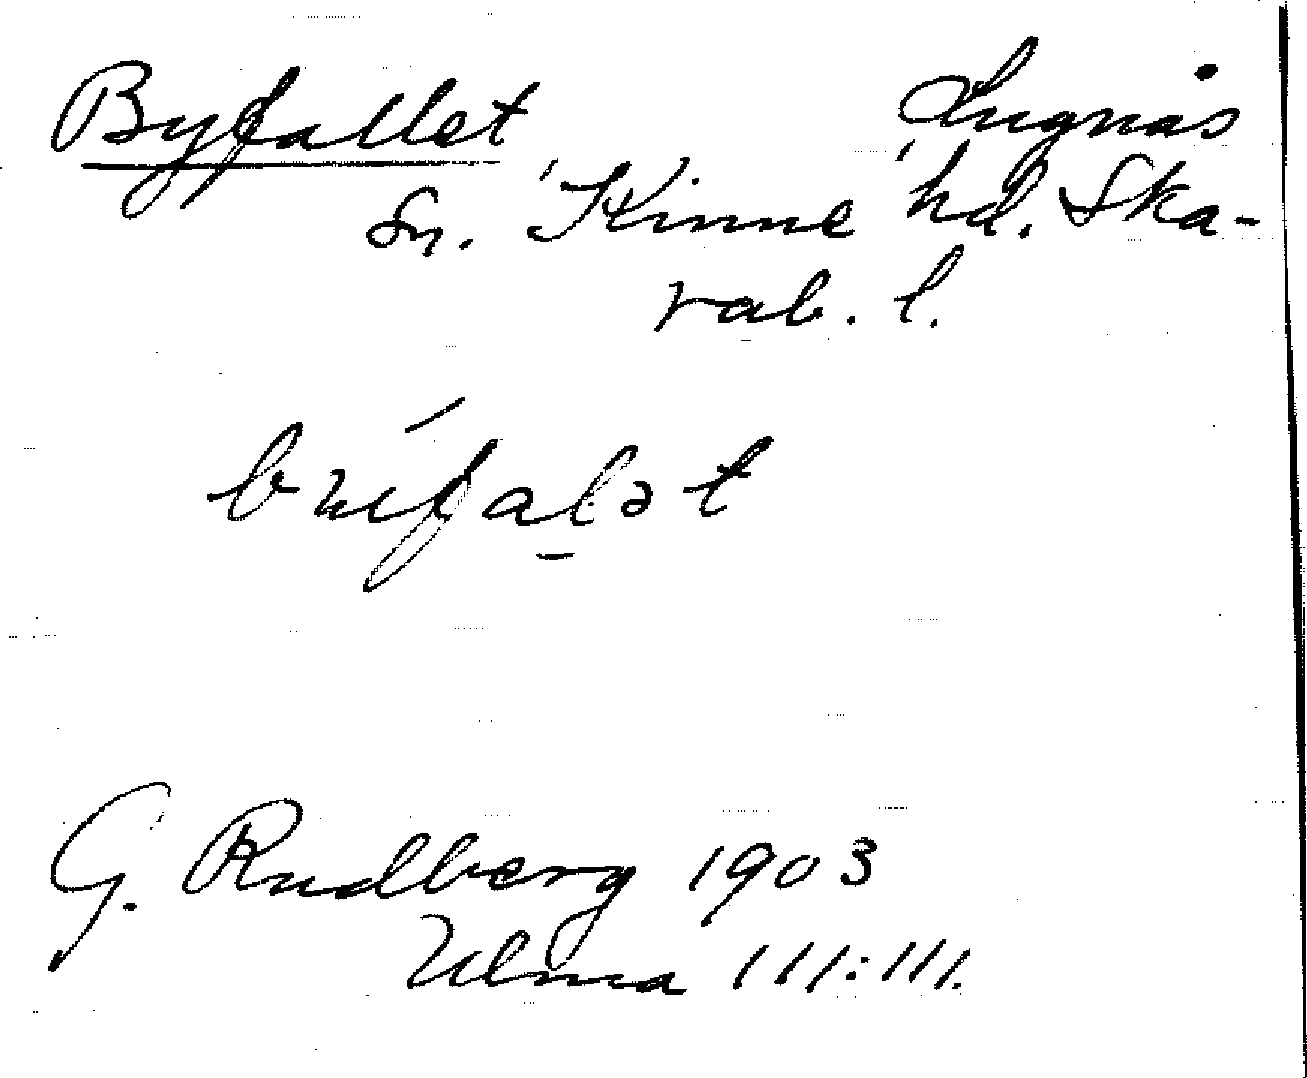 Byfallet Lugnås
Sn. Kinne hd. Ska-
rab. l.
G. Rudberg 1903
Ulma 111:111.